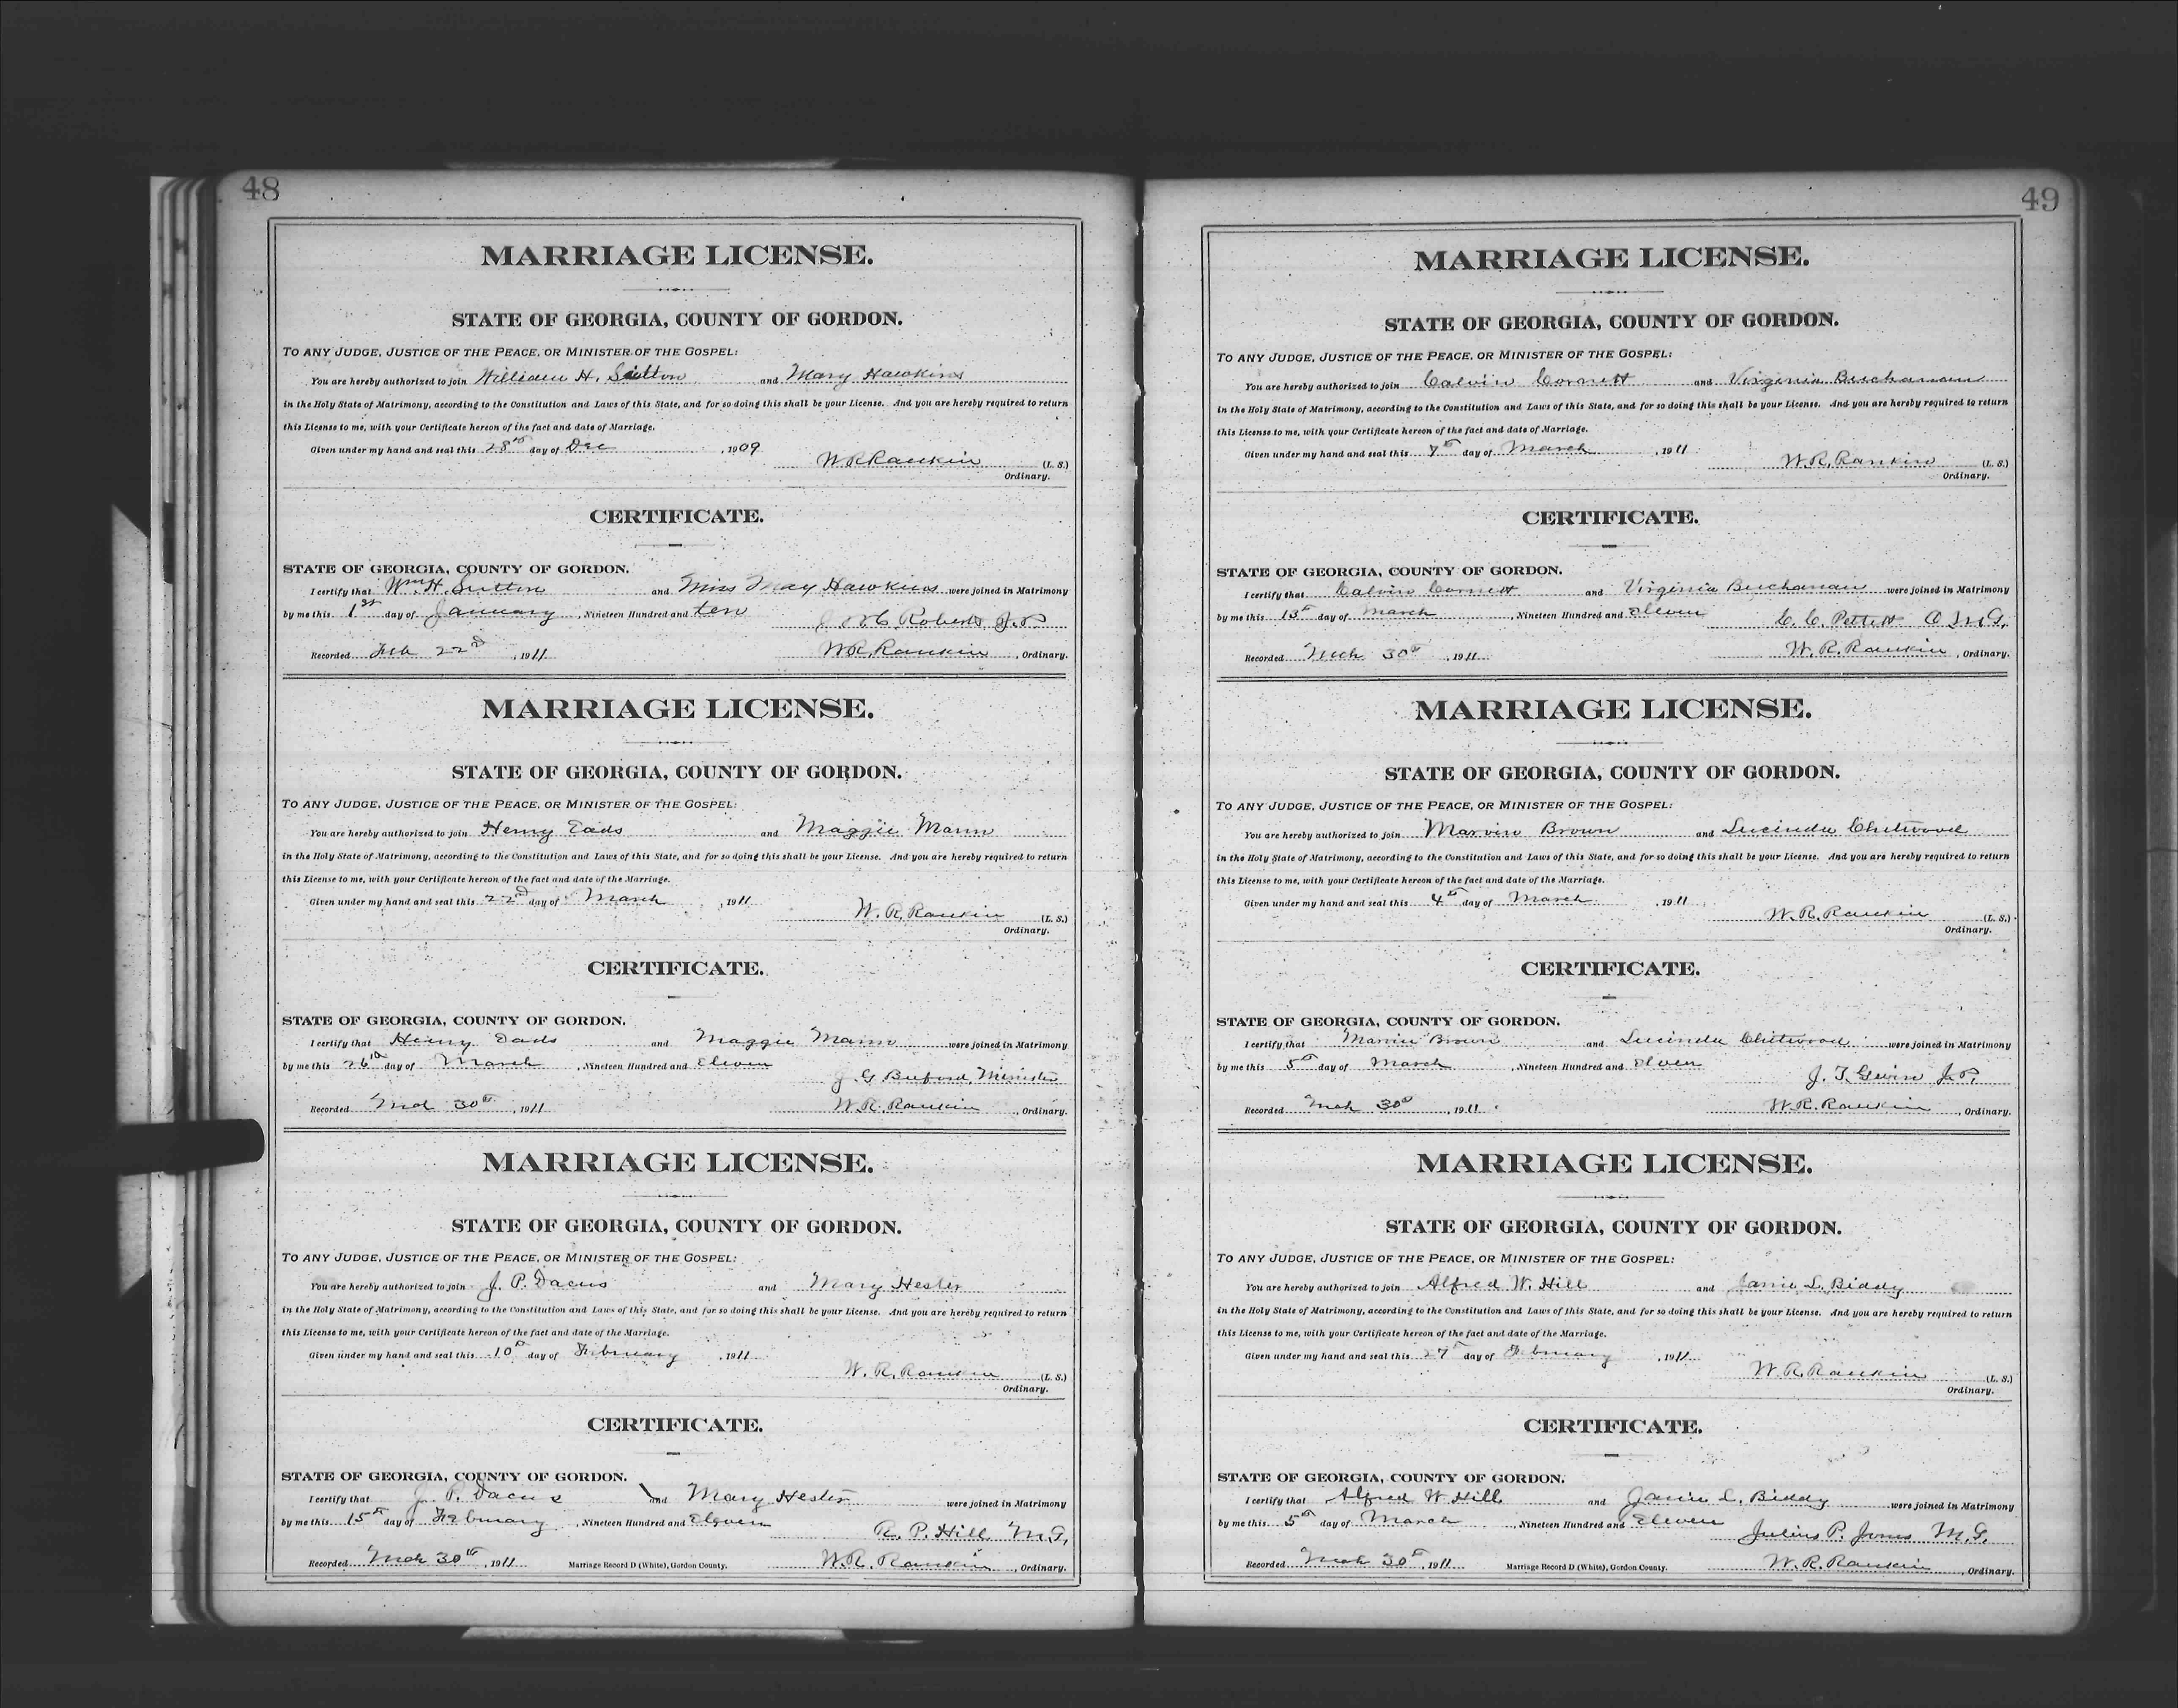 48
MARRIAGE LICENSE.
STATE OF GEORGIA, COUNTY OF GORDON.
TO ANY JUDGE, JUSTICE OF THE PEACE, OR MINISTER OF THE GOSPEL:
You are hereby authorized to join William H. Sutton and Mary Hawkins
in the Holy State of Matrimony, according to the Constitution and Laws of this State, and for so doing this shall be your License. And you are hereby required to return
this License to me, with your Certificate hereon of the fact and date of Marriage.
Given under my hand and seal this 28th day of Dec, 1909
W R Rankin (L. S.)
Ordinary.
CERTIFICATE.
STATE OF GEORGIA, COUNTY OF GORDON.
I certify that Wm H. Sutton and Miss May Hawkins were joined in Matrimony
by me this 1st day of January, Nineteen Hundred and ten
Roberts J.P
Recorded Feb 22nd, 1911 W R Rankin, Ordinary.
MARRIAGE LICENSE.
STATE OF GEORGIA, COUNTY OF GORDON.
TO ANY JUDGE, JUSTICE OF THE PEACE, OR MINISTER OF THE GOSPEL:
You are hereby authorized to join Henry Eads and Maggie Mann
in the Holy State of Matrimony, according to the Constitution and Laws of this State, and for so doing this shall be your License. And you are hereby required to return
this License to me, with your Certificate hereon of the fact and date of the Marriage.
Given under my hand and seal this 22nd day of March, 1911
W. R. Rankin (L. S.)
Ordinary.
CERTIFICATE.
STATE OF GEORGIA, COUNTY OF GORDON.
I certify that Henry Eads and Maggie Mann were joined in Matrimony
by me this 26th day of March, Nineteen Hundred and Eleven
J. G Buford, Minister
Recorded Mch 30th, 1911 W. R. Rankin, Ordinary.
MARRIAGE LICENSE.
STATE OF GEORGIA, COUNTY OF GORDON.
TO ANY JUDGE, JUSTICE OF THE PEACE, OR MINISTER OF THE GOSPEL:
You are hereby authorized to join J. P. Dacus and Mary Hester
in the Holy State of Matrimony, according to the Constitution and Laws of this State, and for so doing this shall be your License. And you are hereby required to return
this License to me, with your Certificate hereon of the fact and date of the Marriage.
Given under my hand and seal this 10th day of February, 1911
W. R. Rankin (L. S.)
Ordinary.
CERTIFICATE.
STATE OF GEORGIA, COUNTY OF GORDON.
I certify that J. P. Dacus and Mary Hester were joined in Matrimony
by me this 15th day of February, Nineteen Hundred and Eleven
R. P. Hill M.G.
Recorded Mch 30th, 1911 Marriage Record D (White), Gordon County. W. R. Rankin, Ordinary.
49
MARRIAGE LICENSE.
STATE OF GEORGIA, COUNTY OF GORDON.
TO ANY JUDGE, JUSTICE OF THE PEACE, OR MINISTER OF THE GOSPEL:
You are hereby authorized to join Calvin Cornett and Virginia Buchanan
in the Holy State of Matrimony, according to the Constitution and Laws of this State, and for so doing this shall be your License. And you are hereby required to return
this License to me, with your Certificate hereon of the fact and date of Marriage.
Given under my hand and seal this 7th day of March, 1911
W. R. Rankin (L. S.)
Ordinary.
CERTIFICATE.
STATE OF GEORGIA, COUNTY OF GORDON.
I certify that Calvin Cornett and Virginia Buchanan were joined in Matrimony
by me this 13th day of March, Nineteen Hundred and Eleven
C. C. Pettett O M G.
Recorded Mch 30th, 1911 W. R. Rankin, Ordinary.
MARRIAGE LICENSE.
STATE OF GEORGIA, COUNTY OF GORDON.
TO ANY JUDGE, JUSTICE OF THE PEACE, OR MINISTER OF THE GOSPEL:
You are hereby authorized to join Marvin Brown and Lucinda Chitwood
in the Holy State of Matrimony, according to the Constitution and Laws of this State, and for so doing this shall be your License. And you are hereby required to return
this License to me, with your Certificate hereon of the fact and date of the Marriage.
Given under my hand and seal this 4th day of March, 1911
W. R. Rankin (L. S.)
Ordinary.
CERTIFICATE.
STATE OF GEORGIA, COUNTY OF GORDON.
I certify that Marvin Brown and Lucinda Chitwood were joined in Matrimony
by me this 5th day of March, Nineteen Hundred and Elven
J. T. J.P.
Recorded Mch 30th, 1911 W. R. Rankin, Ordinary.
MARRIAGE LICENSE.
STATE OF GEORGIA, COUNTY OF GORDON.
TO ANY JUDGE, JUSTICE OF THE PEACE, OR MINISTER OF THE GOSPEL:
You are hereby authorized to join Alfred W. Hill and Janie L. Biddy
in the Holy State of Matrimony, according to the Constitution and Laws of this State, and for so doing this shall be your License. And you are hereby required to return
this License to me, with your Certificate hereon of the fact and date of the Marriage.
Given under my hand and seal this 27th day of February, 1911
W. R. Rankin (L. S.)
Ordinary.
CERTIFICATE.
STATE OF GEORGIA, COUNTY OF GORDON.
I certify that Alfred W Hill and Janie L. Biddy were joined in Matrimony
by me this 5th day of March, Nineteen Hundred and Eleven
Julius P. Jones M.G.
Recorded Mch 30th, 1911 Marriage Record D (White), Gordon County. W. R. Rankin, Ordinary.